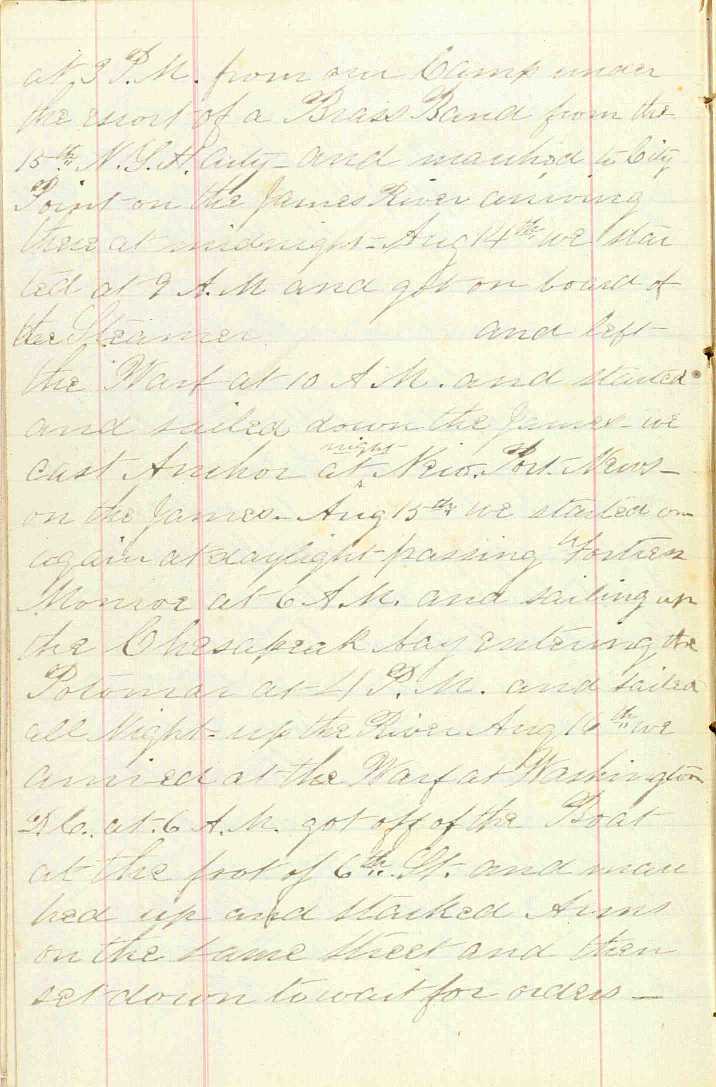 at 3 P.M. from our Camp under
the escort of a Brass Band from the
15th N.Y.H. Arty - and marched to City
Point - on the James River arriving
there at midnight - Aug 14th we star
ted at 9 A.M and got on board of
the Steamer and left -
the Warf at 10 A.M. and started
and sailed down the James - we
cast Anchor at night New. Port. News -
on the James. Aug 15th we started on
again at daylight - passing Fortress
Monroe at 6 A.M. and sailing up
the Chesapeak bay entering the
Potomac at 4 P.M. and sailed
all Night - up the River Aug 16th we
arrived at the Warf at Washington
D.C. at. 6 A.M. got off of the Boat
at the foot of 6th. St. and marc
hed up and stacked Arms
on the same street and then
set down to wait for orders -